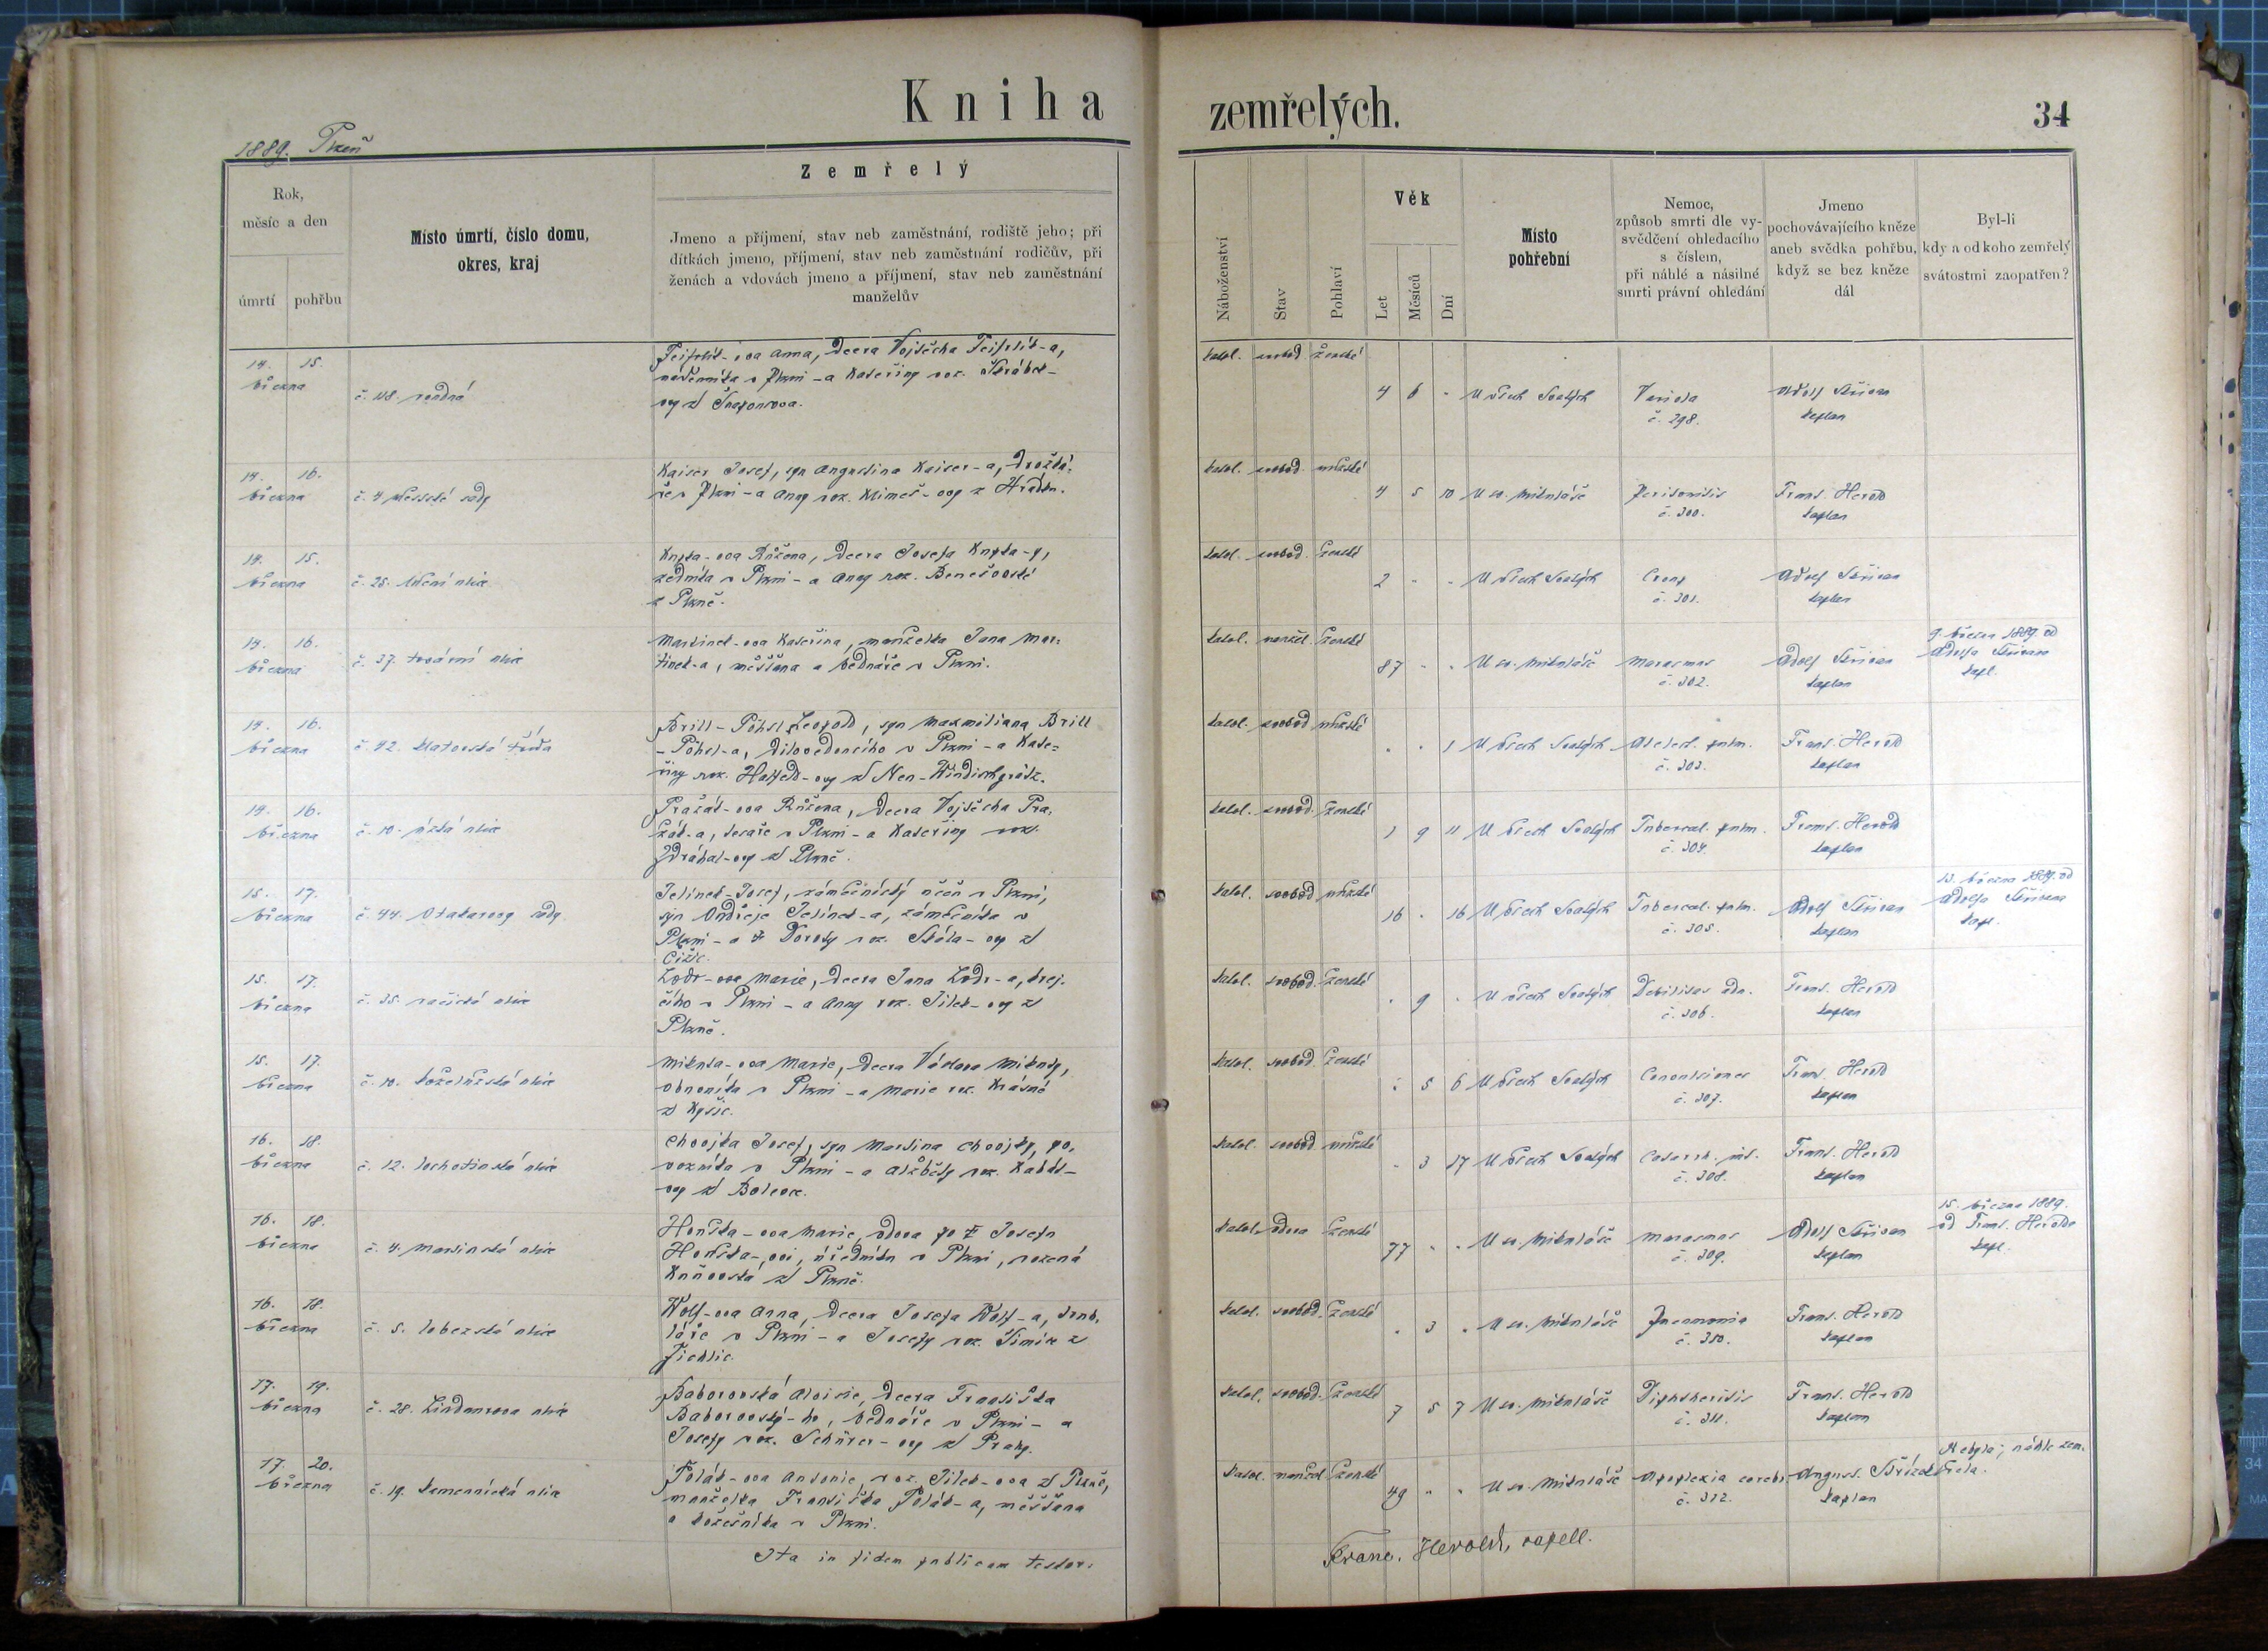 Kniha
zemřelých.
34
1889. Plzeň
Rok,
měsíc a den
úmrtí
pohřbu
Místo úmrtí, číslo domu,
okres, kraj
Zemřelý
Jmeno a příjmení, stav neb zaměstnání, rodiště jeho; při
dítkách jmeno, příjmení, stav neb zaměstnání rodičův, při
ženách a vdovách jmeno a příjmení, stav neb zaměstnání
manželův
Náboženství
Stav
Pohlaví
Věk
Let
Měsíců
Dní
Místo
pohřební
Nemoc,
způsob smrti dle vy-
svědčení ohledacího
s číslem,
při náhlé a násilné
smrti právní ohledání
Jmeno
pochovávajícího kněze
aneb svědka pohřbu,
když se bez kněze
dál
Byl-li
kdy a od koho zemřelý
svátostmi zaopatřen?
14. 15.
března
č. 48. vodná
ova Anna, dcera Vojtěcha
v Plzni - a Kateřiny roz.
katol. svobod. ženské
4 6 - U všech Svatých
Variola
č. 298.
Adolf
kaplan
14. 16.
března
č. 4 sady
Kaiser Josef, syn Augustina Kaiser-a, drožká-
ře v Plzni - a Anny roz. Klimeš-ovy z Hrádku.
katol. svobod. mužské
4 5 10 U sv. Mikuláše
Peritonitis
č. 300.
Frant. Herold
kaplan
14. 15.
března
č. 25. ulice
ova Růžena, dcera Josefa
zedníka v Plzni - a Anny roz. Benešovské
z Plzně.
katol. svobod. ženské
2 - - U všech Svatých
Croup
č. 301.
Adolf
kaplan
14. 16.
března
č. 37. tovární ulice
Martinek-ova Kateřina, manželka Jana Mar-
tinek-a, měšťana a bednáře v Plzni.
katol. manžel. ženské
87 - - U sv. Mikuláše
Marasmus
č. 302.
Adolf
kaplan
9. března 1889. od
Adolfa
kapl.
14. 16.
března
č. 42. klatovská třída
Brill-Pöhsl Leopold, syn Maxmiliana Brill
-Pöhsl-a, dílovedoucího v Plzni - a Kate-
řiny roz. ovy z Neu-Windischgrätz.
katol. svobod. mužské
- - 1 U všech Svatých
Atelect. pulm.
č. 303.
Frant. Herold
kaplan
14. 16.
března
č. 10. úzká ulice
Pražák-ova Růžena, dcera Vojtěcha Pra-
žák-a, tesaře v Plzni - a Kateřiny roz.
Zdráhal-ovy z Plzně.
katol. svobod. ženské
1 9 11 U všech Svatých
Tubercul. pulm.
č. 304.
Frant. Herold
kaplan
15. 17.
března
č. 44. Otakarovy sady
Jelínek Josef, zámečnický učeň v Plzni,
syn Ondřeje Jelínek-a, zámečníka v
Plzni - a † Doroty roz. Skála-ovy z
Čižic.
katol. svobod. mužské
16 - 16 U všech Svatých
Tubercul. pulm.
č. 305.
Adolf
kaplan
13. března 1889. od
Adolfa
kapl.
15. 17.
března
č. 35. ulice
Lodr-ova Marie, dcera Jana Lodr-a, krej-
čího v Plzni - a Anny roz. Pilek-ovy z
Plzně.
katol. svobod. ženské
- 9 - U všech Svatých
Debilitas
č. 306.
Frant. Herold
kaplan
15. 17.
března
č. 10. koželužská ulice
Mikuta-ova Marie, dcera Václava Mikuty,
obuvníka v Plzni - a Marie roz. Krásné
z Kyšic.
katol. svobod. ženské
- 5 6 U všech Svatých
Convulsiones
č. 307.
Frant. Herold
kaplan
16. 18.
března
č. 12. lochotínská ulice
Chvojka Josef, syn Martina Chvojky, po-
vozníka v Plzni - a Alžběty roz. Kabát-
ovy z Bolevce.
katol. svobod. mužské
- 3 17 U všech Svatých
Catarrh. int.
č. 308.
Frant. Herold
kaplan
16. 18.
března
č. 4. Martinská ulice
Houška-ova Marie, vdova po † Josefu
Houška-ovi, úředníku v Plzni, rozená
z Plzně.
katol. vdova ženské
77 - - U sv. Mikuláše
Marasmus
č. 309.
Adolf
kaplan
15. března 1889.
od Frant. Herolda
kapl.
16. 18.
března
č. 5. lobezská ulice
Wolf-ova Anna, dcera Josefa Wolf-a, truh-
láře v Plzni - a Josefy roz. Šimice z
Zichlic.
katol. svobod. ženské
- 3 - U sv. Mikuláše
Pneumonia
č. 310.
Frant. Herold
kaplan
17. 19.
března
č. 28. Lindaurova ulice
Baborovská Aloisie, dcera Františka
Baborovský-ho, bednáře v Plzni - a
Josefy roz. Schürer-ovy z Prahy.
katol. svobod. ženské
7 5 7 U sv. Mikuláše
Diphtheritis
č. 311.
Frant. Herold
kaplan
17. 20.
března
č. 19. kamenická ulice
Polák-ova Antonie, roz. Pilek-ova z Plzně,
manželka Františka Polák-a, měšťana
a kožešníka v Plzni.
katol. manžel. ženské
49 - - U sv. Mikuláše
Apoplexia cerebri
č. 312.
August. Střízek
kaplan
Nebyla; náhle zem-
řela.
Ita in fidem publicam testor:
Franc. Herold, capell.